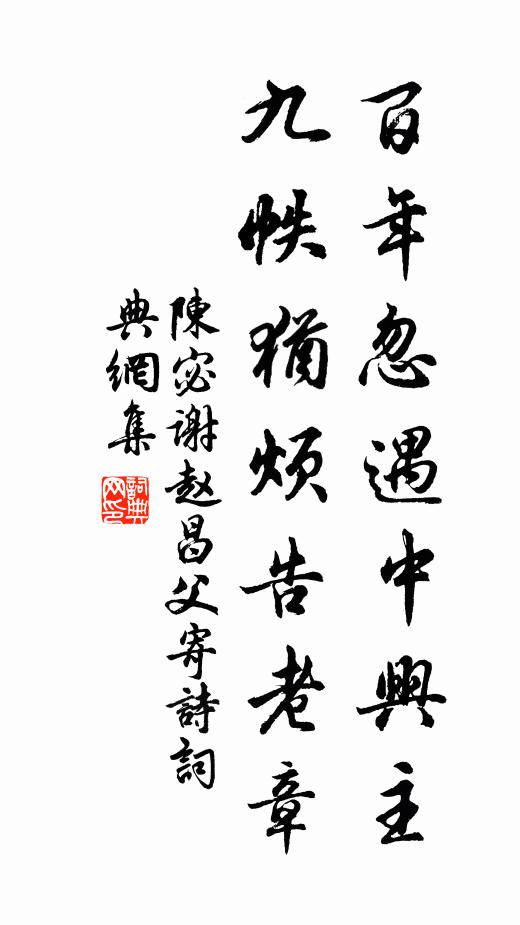 百年忽遇中興主
九帙猶煩告老章
陳宓谢赵昌父寄詩詞
典網集
詞典網印